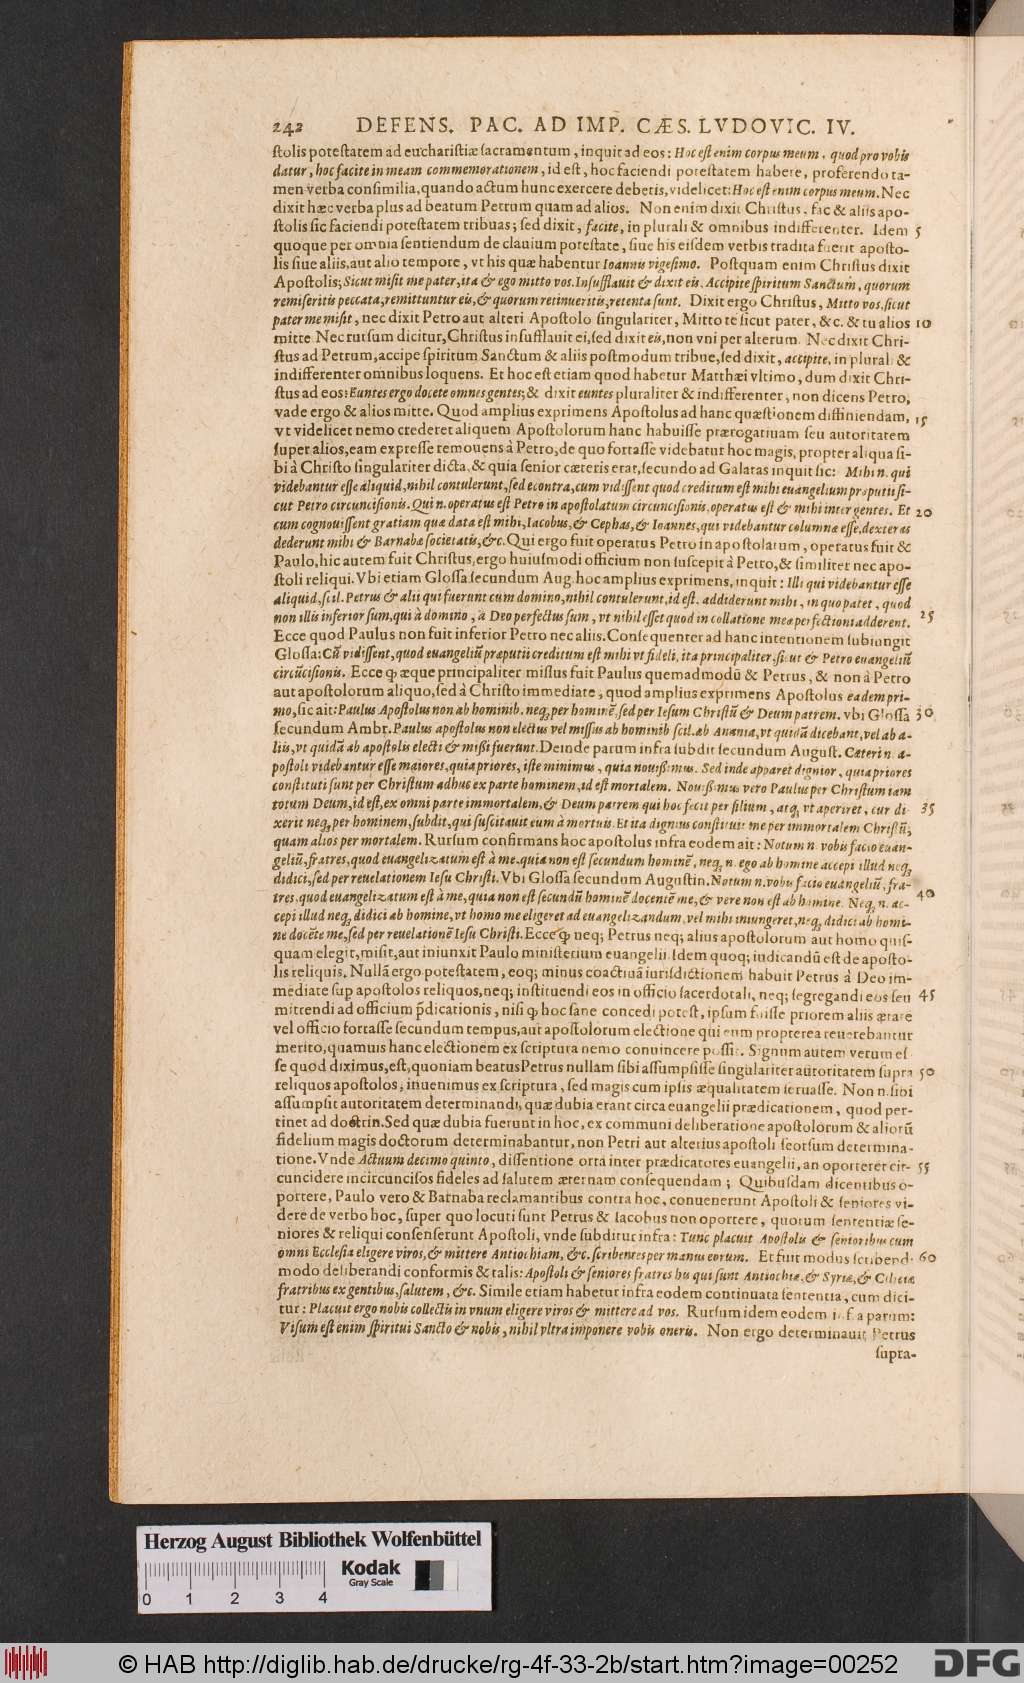 242 DEFENS. PAC. AD IMP. CÆS. LVDOVIC. IV.
ſtolis poteſtatem ad euchariſtiæ ſacramentum, inquit ad eos: Hoc eſt enim corpus meum, quod pro vobis
datur, hoc facite in meam commemorationem, id eſt, hoc faciendi poteſtatem habere, proferendo ta-
men verba conſimilia, quando actum hunc exercere debetis, videlicet: Hoc eſt enim corpus meum. Nec
dixit hæc verba plus ad beatum Petrum quam ad alios. Non enim dixit Chriſtus, fac & aliis apo-
ſtolis ſic faciendi poteſtatem tribuas; ſed dixit, facite, in plurali & omnibus indifferenter. Idem 5
quoque per omnia ſentiendum de clauium poteſtate, ſiue his eiſdem verbis tradita fuerit apoſto-
lis ſiue aliis, aut alio tempore, vt his quæ habentur Ioannis vigeſimo. Poſtquam enim Chriſtus dixit
Apoſtolis; Sicut miſit me pater, ita & ego mitto vos. Inſufflauit & dixit eis. Accipite ſpiritum Sanctum, quorum
remiſeritis peccata, remittuntur eis, & quorum retinueritis, retenta ſunt. Dixit ergo Chriſtus, Mitto vos, ſicut
pater me miſit, nec dixit Petro aut alteri Apoſtolo ſingulariter, Mitto te ſicut pater, &c. & tu alios 10
mitte Nec rurſum dicitur, Chriſtus inſufflauit ei, ſed dixit eis, non vni per alterum. Nec dixit Chri-
ſtus ad Petrum, accipe ſpiritum Sanctum & aliis poſtmodum tribue, ſed dixit, accipite, in plurali &
indifferenter omnibus loquens. Et hoc eſt etiam quod habetur Matthæi vltimo, dum dixit Chri-
ſtus ad eos: Euntes ergo docete omnes gentes; & dixit euntes pluraliter & indifferenter, non dicens Petro,
vade ergo & alios mitte. Quod amplius exprimens Apoſtolus ad hanc quæſtionem diffiniendam, 15
vt videlicet nemo crederet aliquem Apoſtolorum hanc habuiſſe prærogatiuam ſeu autoritatem
ſuper alios, eam expreſſe remouens à Petro, de quo fortaſſe videbatur hoc magis, propter aliqua ſi-
bi à Chriſto ſingulariter dicta, & quia ſenior cæteris erat, ſecundo ad Galatas inquit ſic: Mihi n. qui
videbantur eſſe aliquid, nihil contulerunt, ſed econtra, cum vidiſſent quod creditum eſt mihi euangelium præputii ſi-
cut Petro circunciſionis. Qui n. operatus eſt Petro in apoſtolatum circunciſionis, operatus eſt & mihi inter gentes. Et 20
cum cognouiſſent gratiam quæ data eſt mihi, Iacobus, & Cephas, & Ioannes, qui videbantur columnæ eſſe, dexteras
dederunt mihi & Barnabæ ſocietatis, &c. Qui ergo fuit operatus Petro in apoſtolatum, operatus fuit &
Paulo, hic autem fuit Chriſtus, ergo huiuſmodi officium non ſuſcepit à Petro, & ſimiliter nec apo-
ſtoli reliqui. Vbi etiam Gloſſa ſecundum Aug. hoc amplius exprimens, inquit: Illi qui videbantur eſſe
aliquid, ſcil. Petrus & alii qui fuerunt cum domino, nihil contulerunt, id eſt, addiderunt mihi, in quo patet, quod
non illis inferior ſum, qui à domino, à Deo perfectus ſum, vt nihil eſſet quod in collatione meæ perfectioni adderent. 25
Ecce quod Paulus non fuit inferior Petro nec aliis. Conſequenter ad hanc intentionem ſubiungit
Gloſſa: Cū vidiſſent, quod euangeliū præputii creditum eſt mihi vt fideli, ita principaliter, ſicut & Petro euangeliū
circūciſionis. Ecce ꝙ æque principaliter miſſus fuit Paulus quemadmodū & Petrus, & non à Petro
aut apoſtolorum aliquo, ſed à Chriſto immediate, quod amplius exprimens Apoſtolus eadem pri-
mo, ſic ait: Paulus Apoſtolus non ab hominib. neq; per hominē, ſed per Ieſum Chriſtū & Deum patrem. vbi Gloſſa 30
ſecundum Ambr. Paulus apoſtolus non electus vel miſſus ab hominib ſcil. ab Anania, vt quidā dicebant, vel ab a-
liis, vt quidā ab apoſtolis electi & miſſi fuerunt. Deinde parum infra ſubdit ſecundum Auguſt. Cæteri n. a-
poſtoli videbantur eſſe maiores, quia priores, iſte minimus, quia nouiſſimus. Sed inde apparet dignior, quia priores
conſtituti ſunt per Chriſtum adhuc ex parte hominem, id eſt mortalem. Nouiſſimus vero Paulus per Chriſtum iam
totum Deum, id eſt, ex omni parte immortalem, & Deum patrem qui hoc fecit per filium, atq; vt aperiret, cur di- 35
xerit neq; per hominem, ſubdit, qui ſuſcitauit eum à mortuis. Et ita dignius conſtituit me per immortalem Chriſtū;
quam alios per mortalem. Rurſum confirmans hoc apoſtolus infra eodem ait: Notum n. vobis facio euan-
geliū, fratres, quod euangelizatum eſt à me, quia non eſt ſecundum hominē, neq; n. ego ab homine accepi illud neq;
didici, ſed per reuelationem Ieſu Chriſti. Vbi Gloſſa ſecundum Auguſtin. Notum n. vobis facio euangeliū, fra-
tres, quod euangelizatum eſt à me, quia non eſt ſecundū hominē docentē me, & vere non eſt ab homine. Neq; n. ac- 40
cepi illud neq; didici ab homine, vt homo me eligeret ad euangelizandum, vel mihi iniungeret, neq; didici ab homi-
ne docēte me, ſed per reuelationē Ieſu Chriſti. Ecce ꝙ neq; Petrus neq; alius apoſtolorum aut homo quiſ-
quam elegit, miſit, aut iniunxit Paulo miniſterium euangelii. Idem quoq; iudicandū eſt de apoſto-
lis reliquis. Nullā ergo poteſtatem, eoq; minus coactiuā iuriſdictionem habuit Petrus à Deo im-
mediate ſup apoſtolos reliquos, neq; inſtituendi eos in officio ſacerdotali, neq; ſegregandi eos ſeu 45
mittendi ad officium p̄dicationis, niſi ꝙ hoc ſane concedi poteſt, ipſum fuiſſe priorem aliis ætate
vel officio fortaſſe ſecundum tempus, aut apoſtolorum electione qui eum propterea reuerebantur
merito, quamuis hanc electionem ex ſcriptura nemo conuincere poſſit. Signum autem verum eſ
ſe quod diximus, eſt, quoniam beatus Petrus nullam ſibi aſſumpſiſſe ſingulariter autoritatem ſupra 50
reliquos apoſtolos, inuenimus ex ſcriptura, ſed magis cum ipſis æqualitatem ſeruaſſe. Non n. ſibi
aſſumpſit autoritatem determinandi, quæ dubia erant circa euangelii prædicationem, quod per-
tinet ad doctrin. Sed quæ dubia fuerunt in hoc, ex communi deliberatione apoſtolorum & aliorū
fidelium magis doctorum determinabantur, non Petri aut alterius apoſtoli ſeorſum determina-
tione. Vnde Actuum decimo quinto, diſſentione orta inter prædicatores euangelii, an oporteret cir- 55
cuncidere incircunciſos fideles ad ſalutem æternam conſequendam; Quibuſdam dicentibus o-
portere, Paulo vero & Barnaba reclamantibus contra hoc, conuenerunt Apoſtoli & ſeniores vi-
dere de verbo hoc, ſuper quo locuti ſunt Petrus & Iacobus non oportere, quorum ſententiæ ſe-
niores & reliqui conſenſerunt Apoſtoli, vnde ſubditur infra: Tunc placuit Apoſtolis & ſenioribus cum
omni Eccleſia eligere viros, & mittere Antiochiam, &c. ſcribentes per manus eorum. Et fuit modus ſcribendi 60
modo deliberandi conformis & talis: Apoſtoli & ſeniores fratres his qui ſunt Antiochiæ, & Syriæ, & Ciliciæ
fratribus ex gentibus, ſalutem, &c. Simile etiam habetur infra eodem continuata ſententia, cum dici-
tur: Placuit ergo nobis collectis in vnum eligere viros & mittere ad vos. Rurſum idem eodem infra parum:
Viſum eſt enim ſpiritui Sancto & nobis, nihil vltra imponere vobis oneris. Non ergo determinauit Petrus
ſupra-
Herzog August Bibliothek Wolfenbüttel
Kodak
Gray Scale
0 1 2 3 4
© HAB http://diglib.hab.de/drucke/rg-4f-33-2b/start.htm?image=00252
DFG